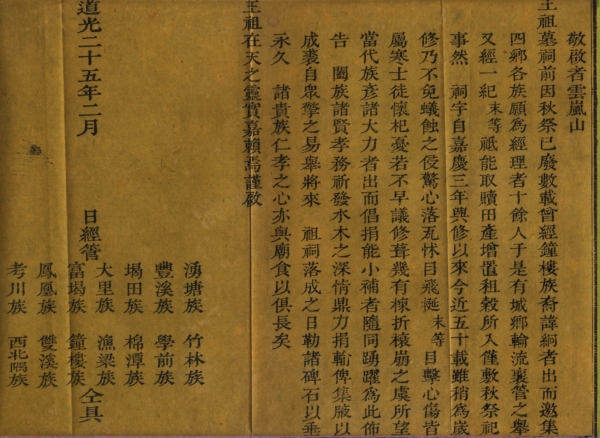 敬啟者雲嵐山
王祖墓祠前因秋祭已廢數載曾經鐘樓族裔諱絅者出而邀集
四鄉各族願為經理者十餘人于是有城鄉輪流襄管之舉
又經一紀末等祇能取贖田產增置租穀所入僅敷秋祭祀
事然 祠宇自嘉慶三年興修以來今近五十載雖稍為歲
修乃不免蟻蝕之侵驚心落瓦怵目飛埏末等目擊心傷皆
屬寒士徒懷杞憂若不早議修葺幾有棟折榱崩之虞所望
當代族彥諸大力者出而倡捐能小補者隨同踴躍為此佈
告 闔族諸賢孝務祈發水木之深情鼎力捐輸俾集腋以
成裘自衆擎之易舉將來 祖祠落成之日勒諸碑石以垂
永久 諸貴族仁孝之心亦與廟食以俱長矣
王祖在天之靈實嘉賴焉謹啟
道光二十五年二月 日經管
湧塘族 竹林族
豐溪族 學前族
堨田族 棉潭族
大里族 漁梁族
富堨族 鐘樓族 仝具
鳳凰族 雙溪族
考川族 西北隅族